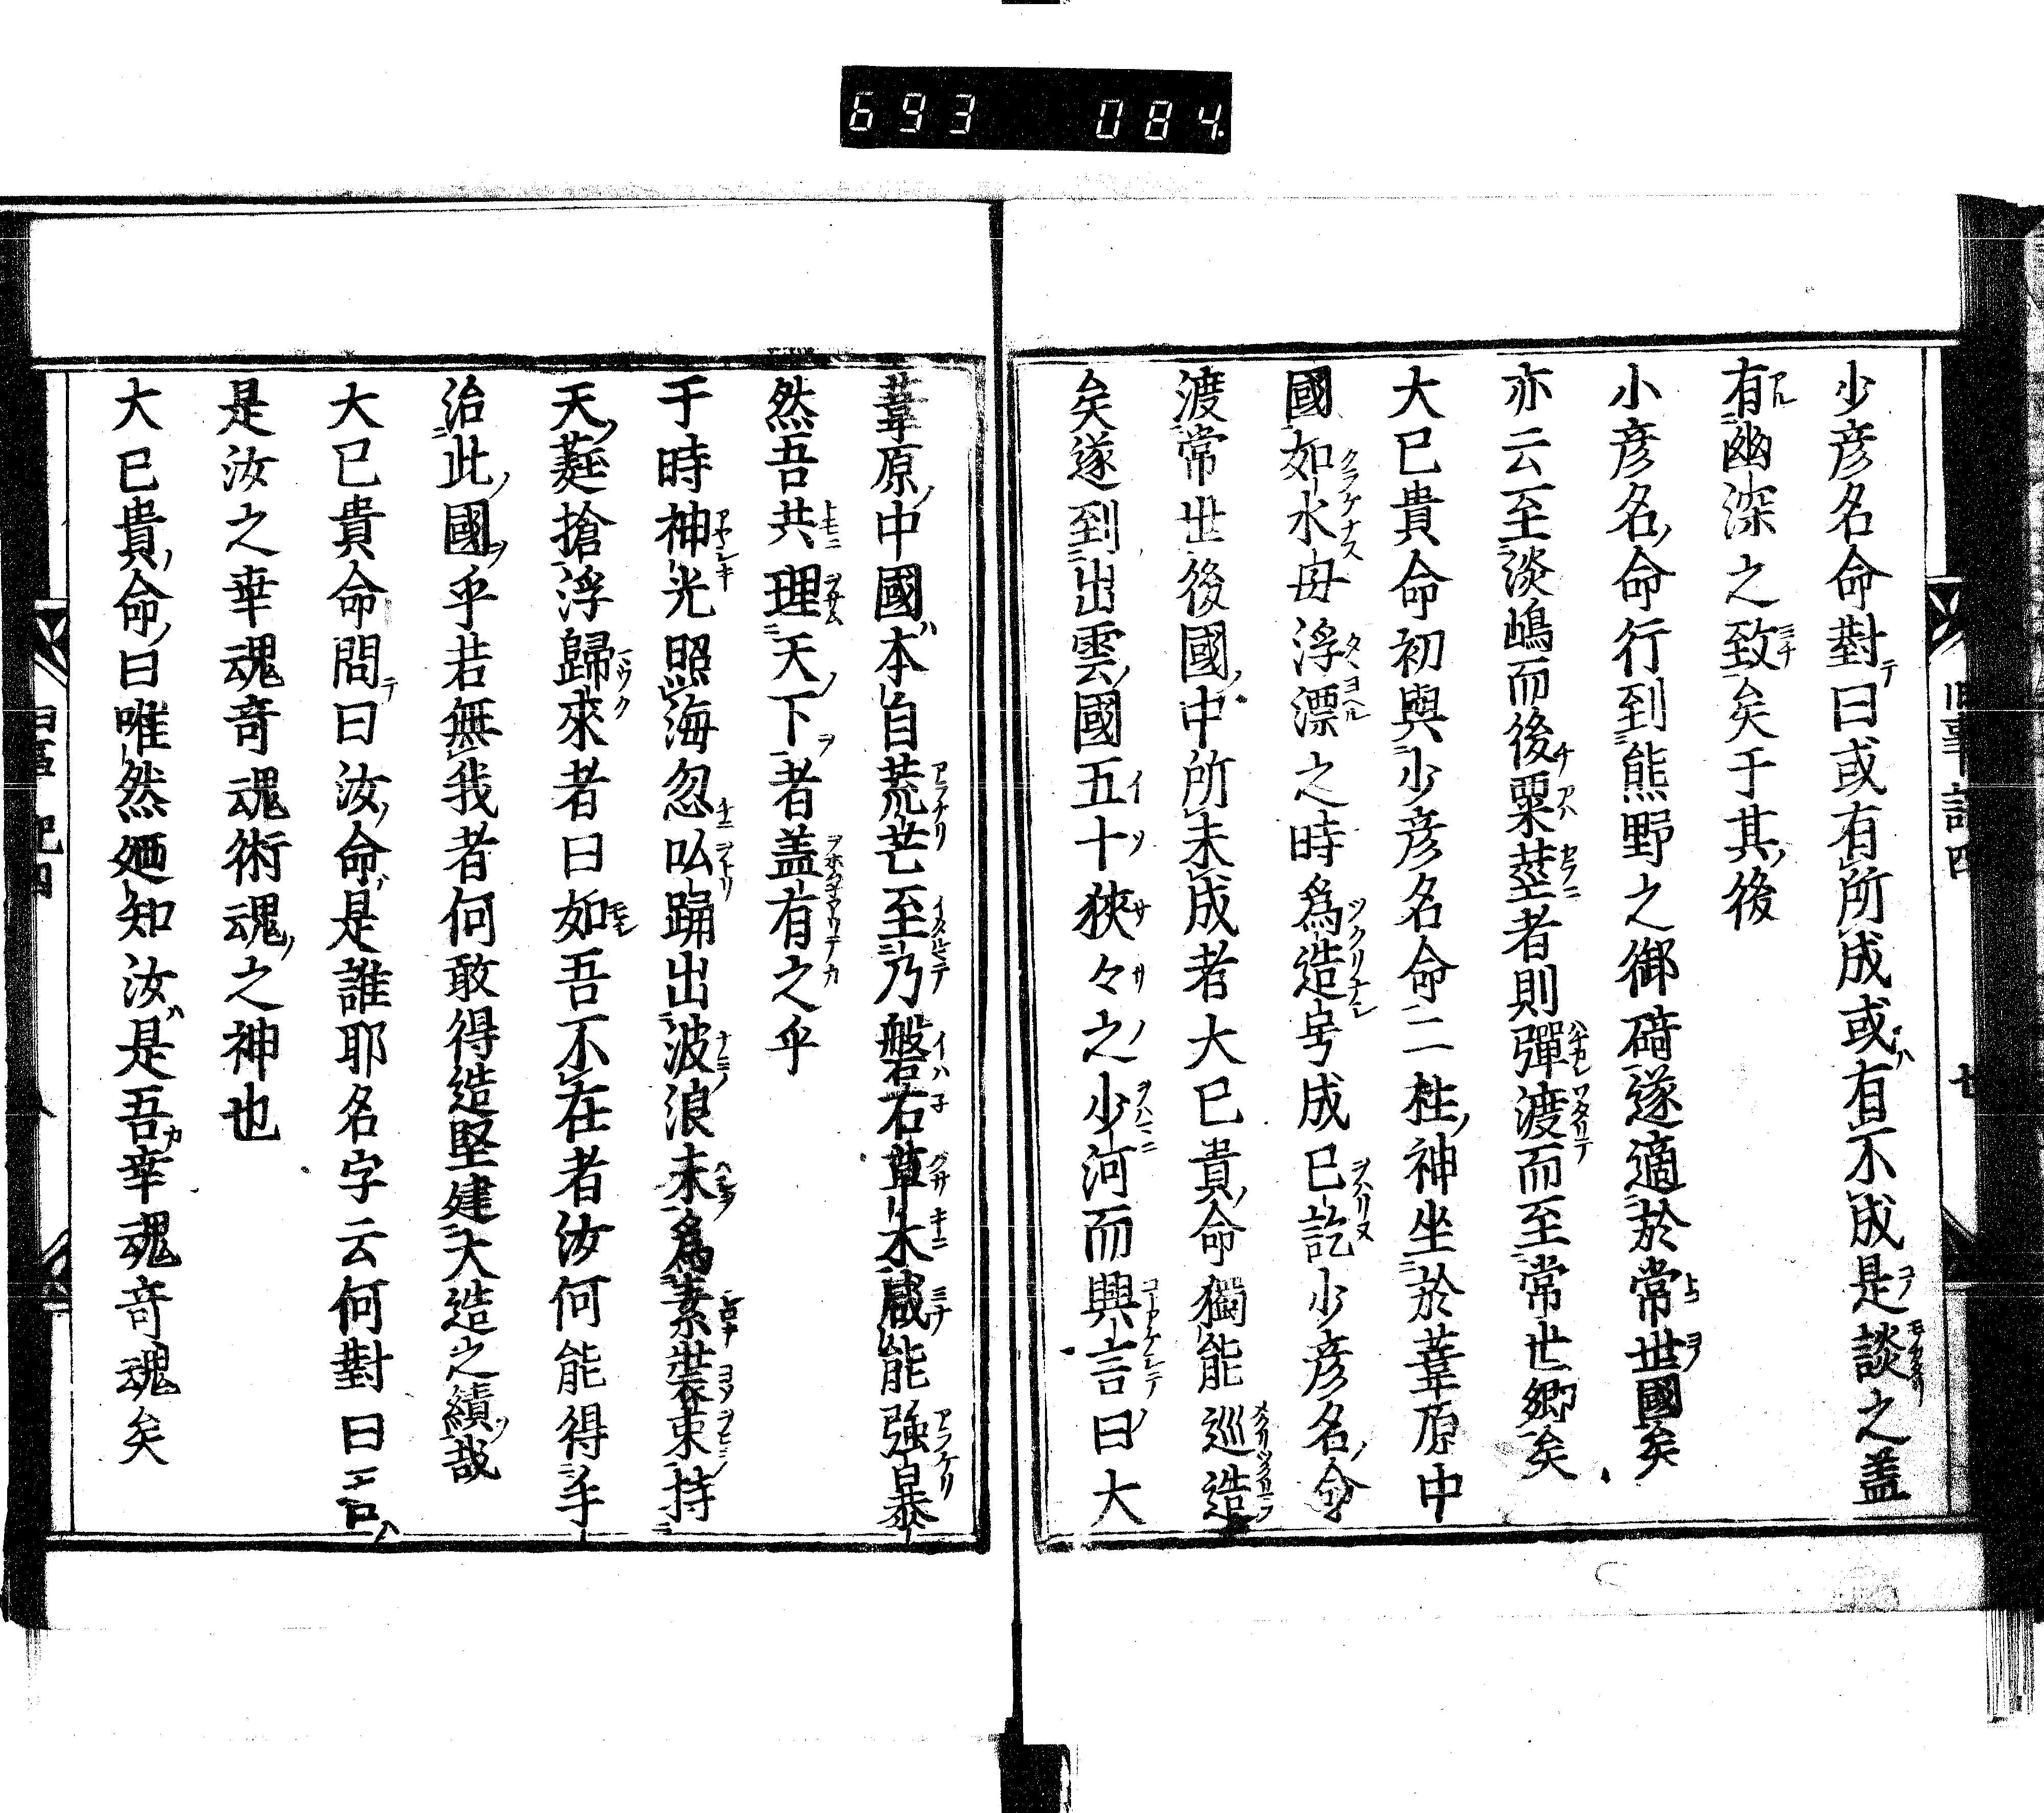 693 084
少彦名命對曰或有所成或有不成是談之盖
有幽深之致矣于其後
小彦名命行到熊野之御碕遂適於常世國矣
亦云至淡嶋而後粟莖者則彈渡而至常世郷矣
大已貴命初與少彦名命二柱神坐於葦原中
國如水母浮漂之時爲造号成已訖少彦名命
渡常世後國中所未成者大已貴命獨能巡造
矣遂到出雲國五十狹々之少河而興言曰大
葦原中國本自荒芒至乃磐石草木咸能強暴
然吾共理天下者盖有之乎
于時神光照海忽以踊出波浪末爲素裝束持
天蕤搶浮歸來者曰如吾不在者汝何能得平
治此國乎若無我者何敢得造堅建大造之績哉
大已貴命問曰汝命是誰耶名字云何對曰吾
是汝之幸魂奇魂術魂之神也
大已貴命曰唯然廼知汝是吾幸魂奇魂矣